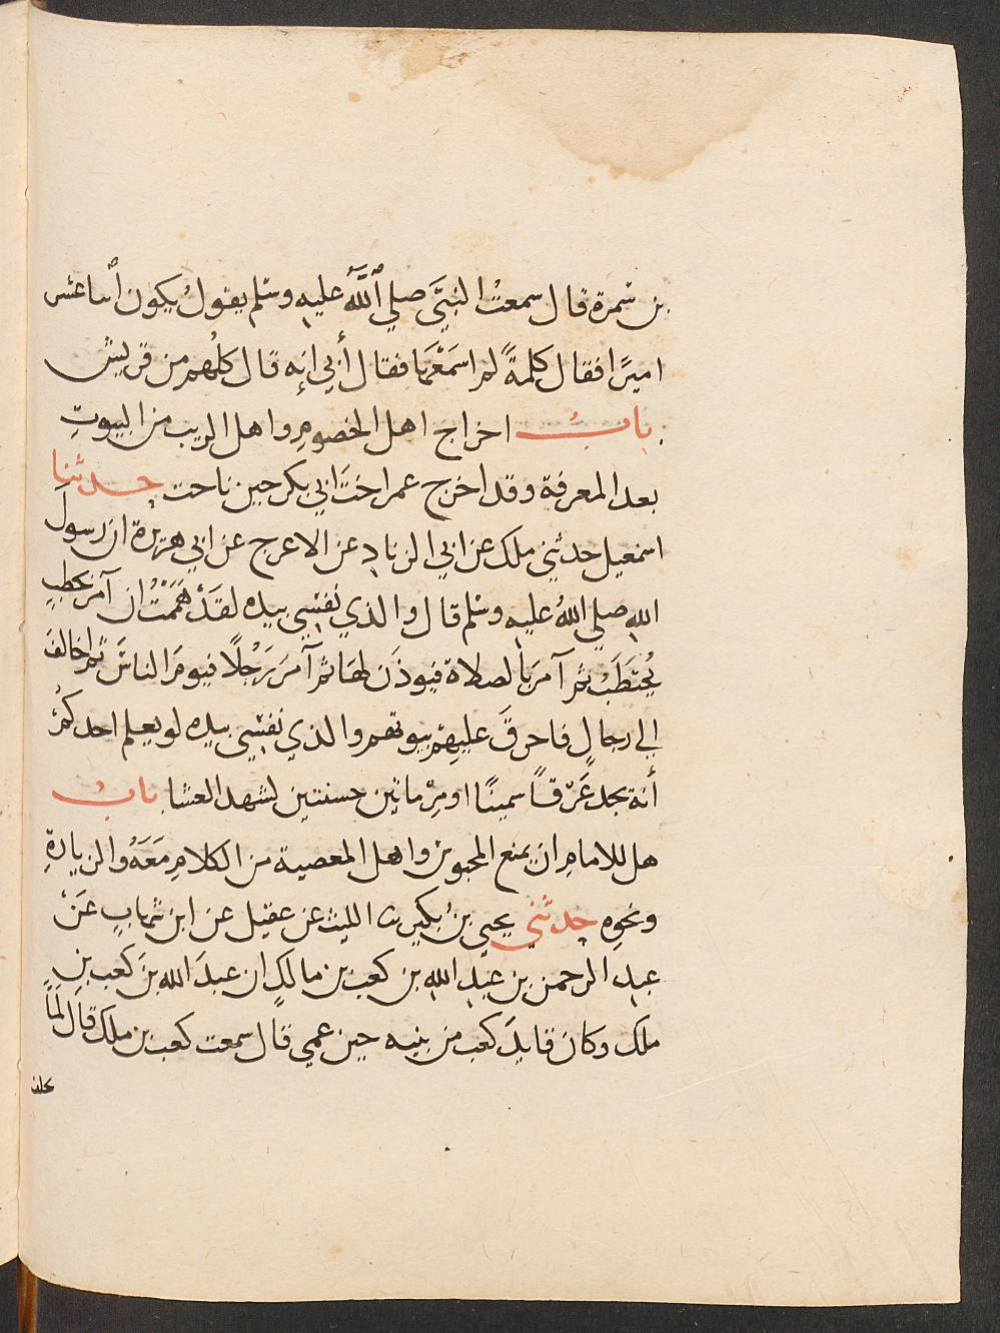 بن سَمرة قال سمعتُ النبيَّ صلي اللّٰه عليه وسلم يقولُ يكون اثنا عشر
اميرًا فقال كلمةً لم اسمَعْهَا فقال أبي إنه قال كلُهم من قريش
بابُ اخراج اهل الخصومِ واهل الريب من البيوتِ
بعد المعرفة وقد اخرج عمر اختَ ابي بكر حين ناحت حدثنا
اسمعيل حدثني ملك عن ابي الزناد عن الاعرج عن ابي هريرة ان رسولَ
اللهِ صلي اللهُ عليه وسلم قال والذي نفسِي بيده لقَدْ هَمَمْتُ ان آمرَ بحطبٍ
يُحْتَطَبْ ثم آمرَ بالصلاة فيوذَن لهَا ثم آمرَ رَجُلًا فيومَ الناسَ ثم اخالفَ
الي رجالٍ فاحرقَ عليهم بيوتهم والذي نفسِي بيده لو يعلم احدكُمْ
أنه يجد عَرْقًا سمينًا او مِرْماتين حسنتين لشهد العشا بابُ
هل للامامِ ان يمنع المجرمين واهل المعصية من الكلامِ مَعَهُ والزيادةِ
ونحوِه حدثني يحيي بنُ بكير ثنا الليث عن عقيل عن ابن شهابٍ عَنْ
عبد الرحمن بن عبدِ اللهِ بن كعب بن مالكٍ ان عبدَ الله بنَ كعب بنِ
ملك وكان قايدَ كعب من بنيه حين عمي قال سمعت كعب بن ملك قال لمَّا
تخلف